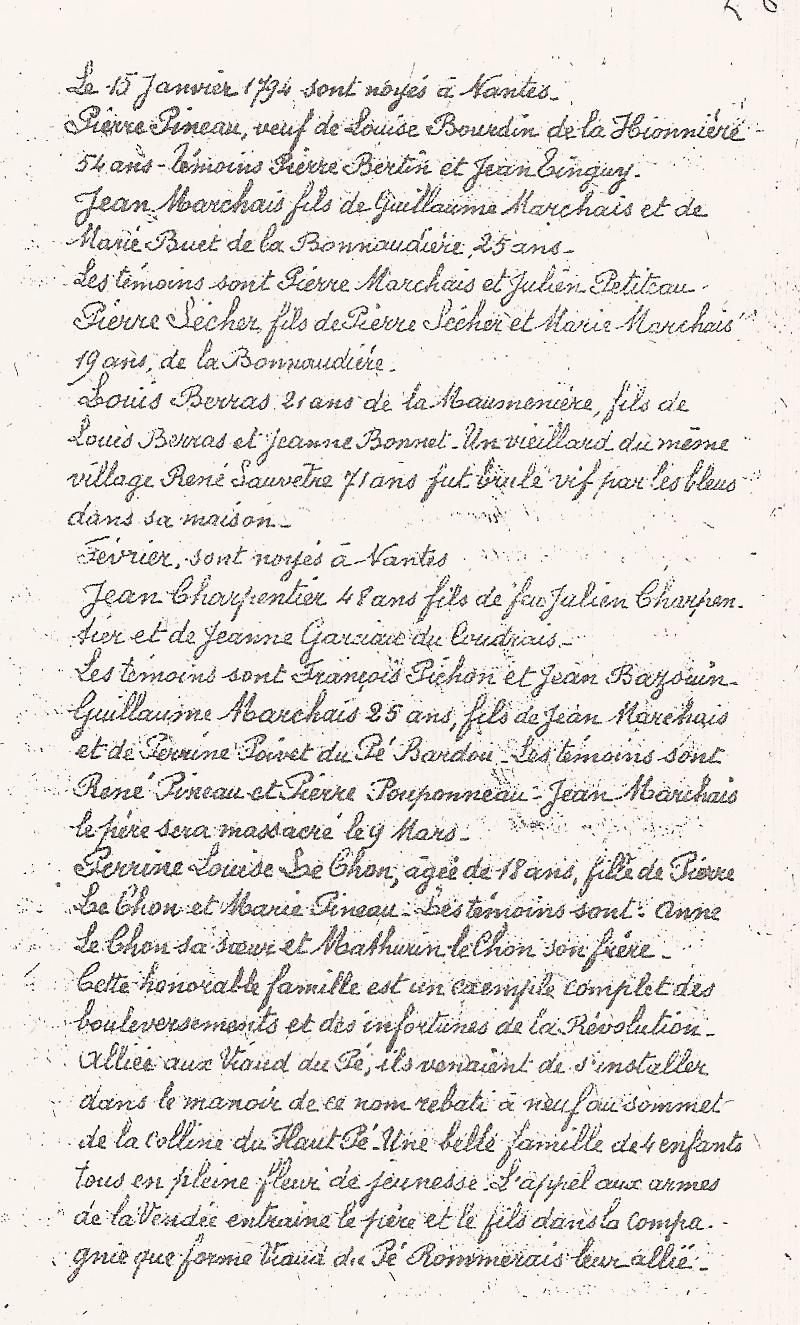 Le 15 Janvier 1794 sont noyés à Nantes_
Pierre Pineau, veuf de Louise Bourdin de la Hionnière
54 ans - témoins Pierre Bertin et Jean Tinguy.
Jean Marchais fils de Guillaume Marchais et de
Marie Buet de la Bonnaudière, 25 ans_
Les témoins sont Pierre Marchais et Julien Petiteau.
Pierre Sécher, fils de Pierre Sécher et Marie Marchais
19 ans, de la Bonnaudière.
Louis Berras 21 ans de la Maumenière, fils de
Louis Berras et Jeanne Bonnet. Un vieillard du même
village René Sauvetre 71 ans fut brulé vif par les bleus
dans sa maison_
Février, sont noyés à Nantes
Jean Charpentier 48 ans fils de feu Julien Charpen-
tier et de Jeanne du Coudrais_
Les témoins sont François Pichon et Jean Bazouin_
Guillaume Marchais 25 ans, fils de Jean Marchais
et de Perrine Poivet du Pé Bardou_Les témoins sont
René Pineau et Pierre Pouponneau - Jean Marchais
le père sera massacré le 9 Mars_
Perrine Louise Le Chon, âgée de 18 ans, fille de Pierre
Le Chon et Marie Pineau. Les témoins sont : Anne
Le Chon sa sœur et Mathurin le Chon son frère_
Cette honorable famille est un exemple complet des
bouleversements et des infortunes de la Révolution_
Alliée aux Viaud du Pé, ils venaient de s'installer
dans le manoir de ce nom rebati à neuf au sommet
de la colline du Haut Pé. Une belle famille de 4 enfants
tous en pleine fleur de jeunesse. L'appel aux armes
de la Vendée entraine le père et le fils dans la compa-
gnie que forme Viaud du Pé Rommerais leur allié_